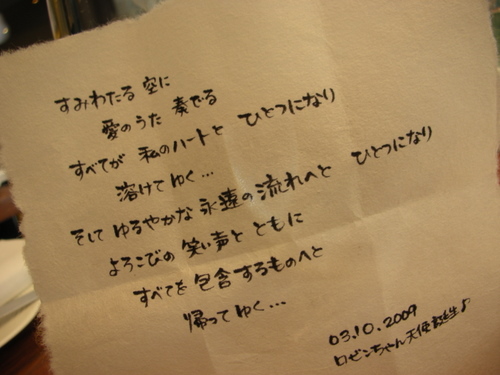 すみわたる 空に
愛のうた 奏でる
すべてが 私のハートと ひとつになり
溶けてゆく…
そして ゆるやかな 永遠の 流れへと ひとつになり
よろこびの 笑い声と ともに
すべてを 包含するものへと
帰ってゆく…
03.10.2009
ロゼンちゃん 天使誕生♪